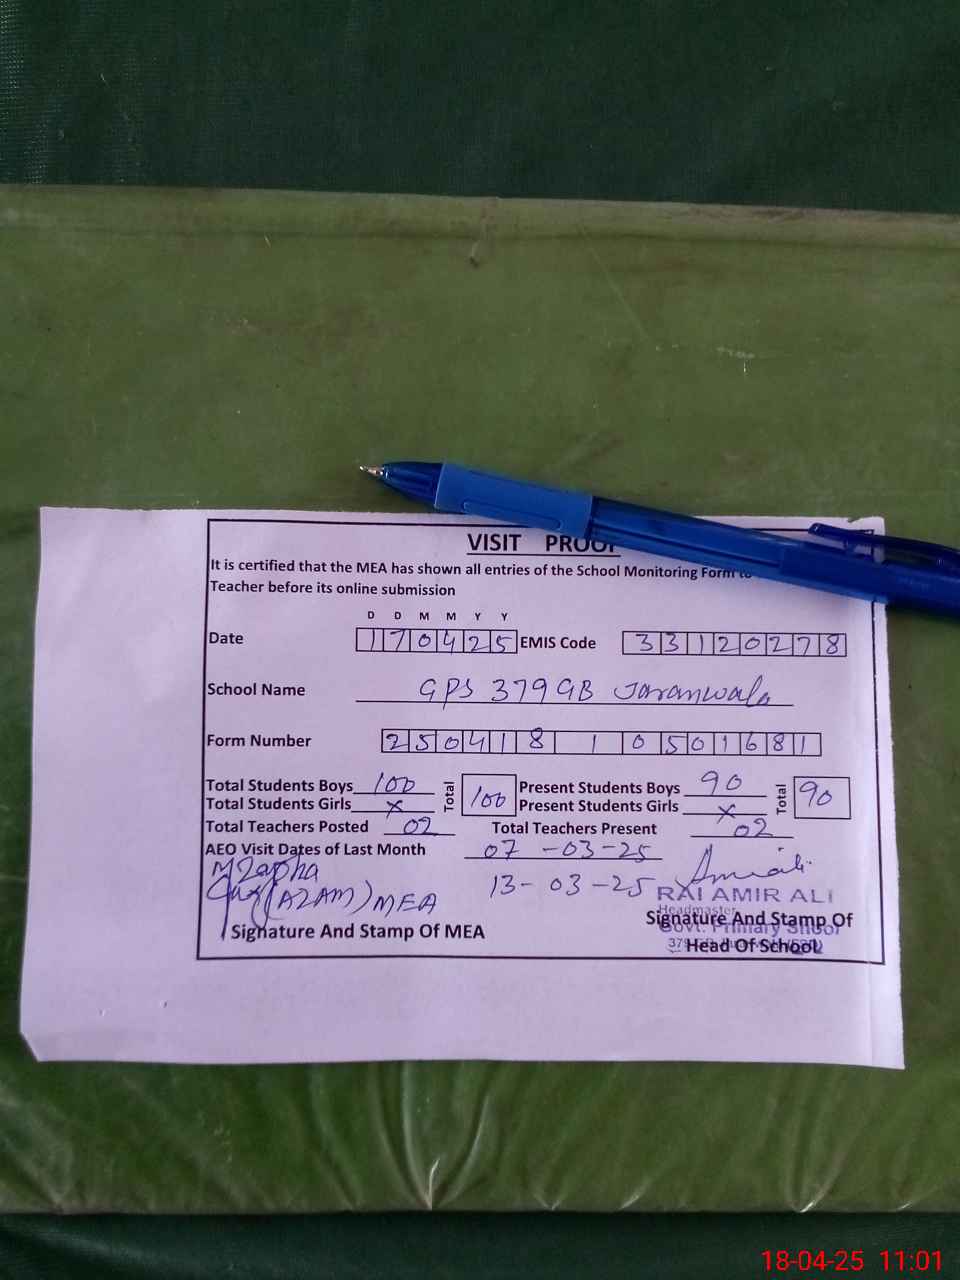 VISIT PROOF
It is certified that the MEA has shown all entries of the School Monitoring Form to
Teacher before its online submission
D D M M Y Y
Date 170425 EMIS Code 33120278
School Name GPS 379 GB Jaranwala
Form Number 250418 1 0501681
Total Students Boys 100 Total 100 Present Students Boys 90 Total 90
Total Students Girls x Present Students Girls x
Total Teachers Posted 02 Total Teachers Present 02
AEO Visit Dates of Last Month 07-03-25
13-03-25
(AZAM) MEA
RAI AMIR ALI
Headmaster
Govt. Primary School
Signature And Stamp Of MEA
Signature And Stamp Of
Head Of School
18-04-25 11:01